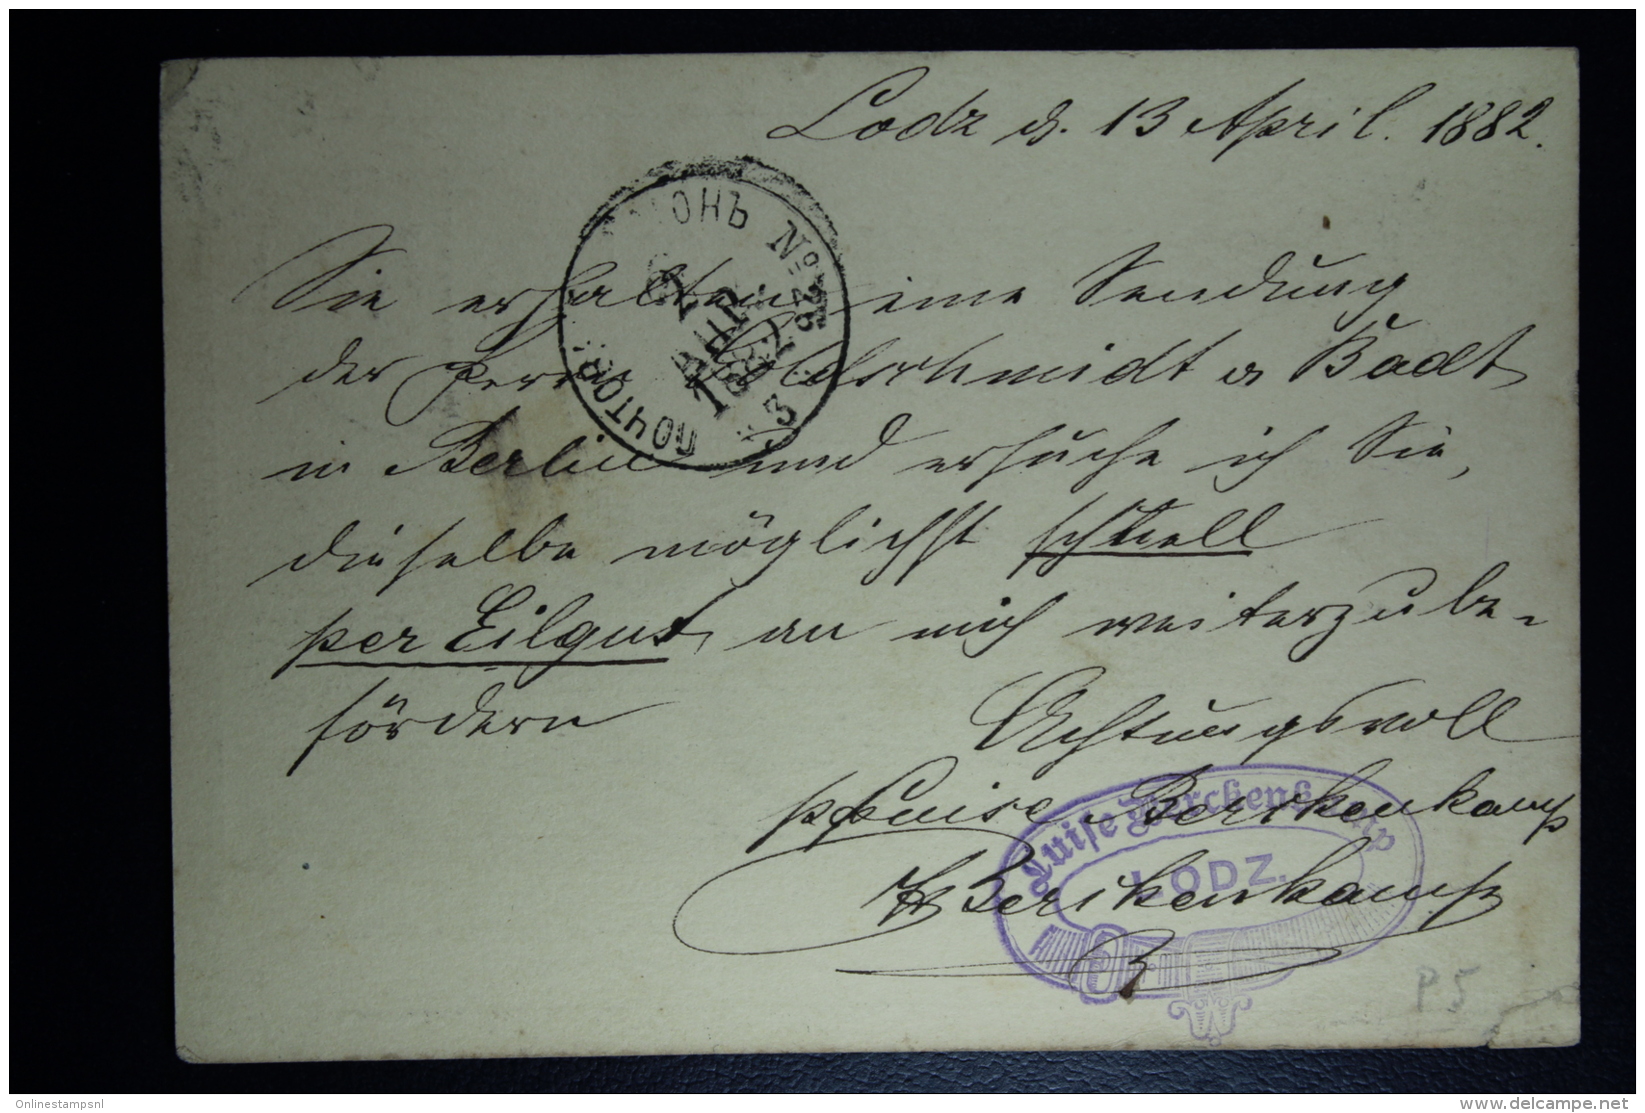 Lodz d. 13 April. 1882.
Sie erhalten eine Sendung
der Herren Goldschmidt & Badt
in Berlin und ersuche ich Sie,
dieselbe möglichst schnell
per Eilgut, an mich weiterzube-
fördern
Achtungsvoll
pp Luise Berckenkamp
Berckenkamp
ВАГОНЪ № 26
7
АПР.
1882
3
ПОЧТОВ.
Luise Berckenkamp
LODZ.
P5
Onlinestampsnl
delcampe.net